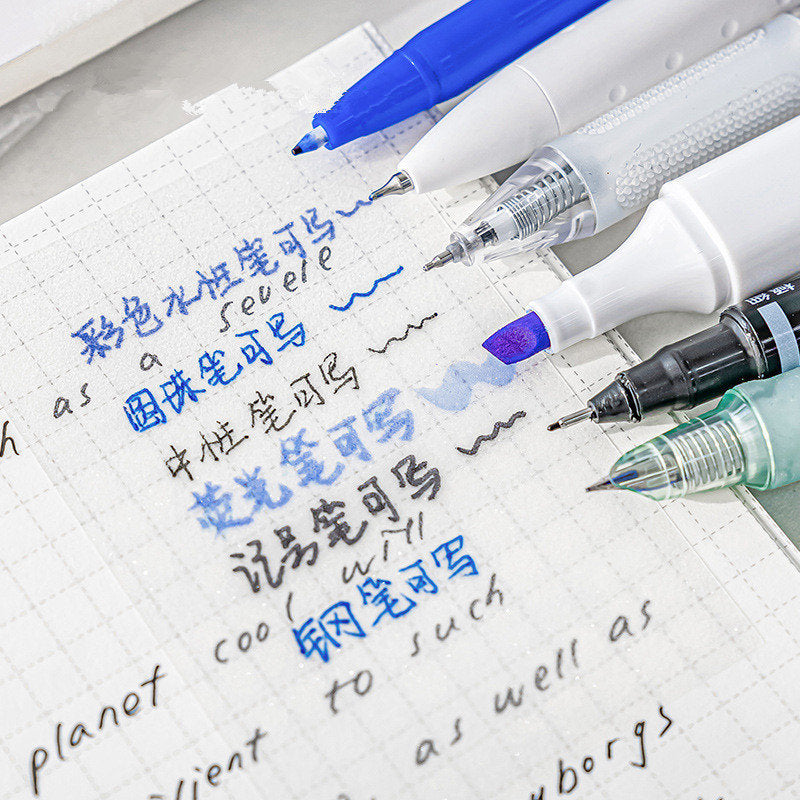 彩色水性笔可写
severe
圆珠笔可写
as a
中性笔可写
荧光笔可写
记号笔可写
cool will
钢笔可写
planet
to such
as well as